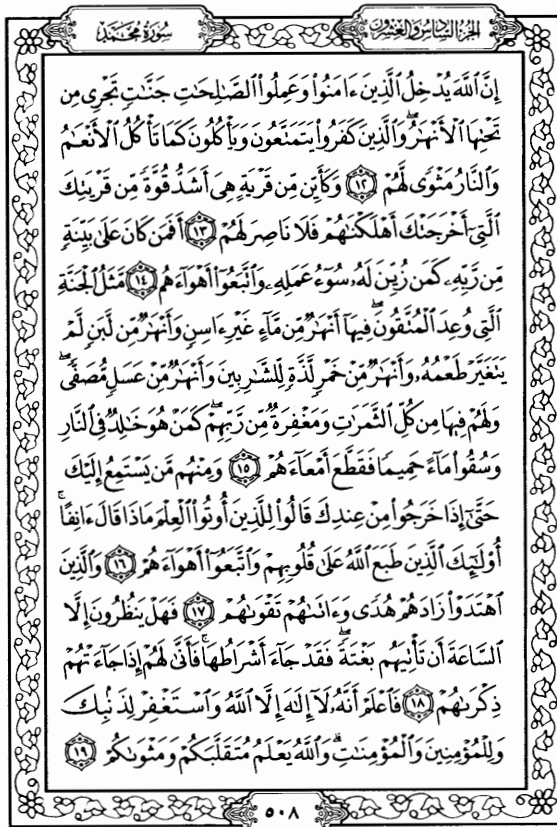 سُورَةُ مُحَمَّد
الجُزْءُ السَّادِسُ وَالعِشْرُونَ
إِنَّ ٱللَّهَ يُدْخِلُ ٱلَّذِينَ ءَامَنُوا۟ وَعَمِلُوا۟ ٱلصَّٰلِحَٰتِ جَنَّٰتٍ تَجْرِى مِن
تَحْتِهَا ٱلْأَنْهَٰرُ ۖ وَٱلَّذِينَ كَفَرُوا۟ يَتَمَتَّعُونَ وَيَأْكُلُونَ كَمَا تَأْكُلُ ٱلْأَنْعَٰمُ
وَٱلنَّارُ مَثْوًى لَّهُمْ ١٢ وَكَأَيِّن مِّن قَرْيَةٍ هِىَ أَشَدُّ قُوَّةً مِّن قَرْيَتِكَ
ٱلَّتِىٓ أَخْرَجَتْكَ أَهْلَكْنَٰهُمْ فَلَا نَاصِرَ لَهُمْ ١٣ أَفَمَن كَانَ عَلَىٰ بَيِّنَةٍ
مِّن رَّبِّهِۦ كَمَن زُيِّنَ لَهُۥ سُوٓءُ عَمَلِهِۦ وَٱتَّبَعُوٓا۟ أَهْوَآءَهُم ١٤ مَّثَلُ ٱلْجَنَّةِ
ٱلَّتِى وُعِدَ ٱلْمُتَّقُونَ ۖ فِيهَآ أَنْهَٰرٌ مِّن مَّآءٍ غَيْرِ ءَاسِنٍ وَأَنْهَٰرٌ مِّن لَّبَنٍ لَّمْ
يَتَغَيَّرْ طَعْمُهُۥ وَأَنْهَٰرٌ مِّنْ خَمْرٍ لَّذَّةٍ لِّلشَّٰرِبِينَ وَأَنْهَٰرٌ مِّنْ عَسَلٍ مُّصَفًّى ۖ
وَلَهُمْ فِيهَا مِن كُلِّ ٱلثَّمَرَٰتِ وَمَغْفِرَةٌ مِّن رَّبِّهِمْ ۖ كَمَنْ هُوَ خَٰلِدٌ فِى ٱلنَّارِ
وَسُقُوا۟ مَآءً حَمِيمًا فَقَطَّعَ أَمْعَآءَهُمْ ١٥ وَمِنْهُم مَّن يَسْتَمِعُ إِلَيْكَ
حَتَّىٰٓ إِذَا خَرَجُوا۟ مِنْ عِندِكَ قَالُوا۟ لِلَّذِينَ أُوتُوا۟ ٱلْعِلْمَ مَاذَا قَالَ ءَانِفًا ۚ
أُو۟لَٰٓئِكَ ٱلَّذِينَ طَبَعَ ٱللَّهُ عَلَىٰ قُلُوبِهِمْ وَٱتَّبَعُوٓا۟ أَهْوَآءَهُمْ ١٦ وَٱلَّذِينَ
ٱهْتَدَوْا۟ زَادَهُمْ هُدًى وَءَاتَىٰهُمْ تَقْوَىٰهُمْ ١٧ فَهَلْ يَنظُرُونَ إِلَّا
ٱلسَّاعَةَ أَن تَأْتِيَهُم بَغْتَةً ۖ فَقَدْ جَآءَ أَشْرَاطُهَا ۚ فَأَنَّىٰ لَهُمْ إِذَا جَآءَتْهُمْ
ذِكْرَىٰهُمْ ١٨ فَٱعْلَمْ أَنَّهُۥ لَآ إِلَٰهَ إِلَّا ٱللَّهُ وَٱسْتَغْفِرْ لِذَنۢبِكَ
وَلِلْمُؤْمِنِينَ وَٱلْمُؤْمِنَٰتِ ۗ وَٱللَّهُ يَعْلَمُ مُتَقَلَّبَكُمْ وَمَثْوَىٰكُمْ ١٩
٥٠٨